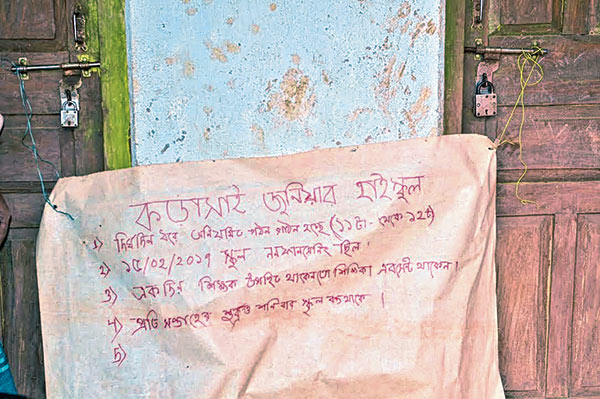 কড়াসাই জুনিয়ার হাইস্কুল
১) দির্ঘদিন ধরে অনিয়মিত পঠন পাঠন হচ্ছে (১১টা - থেকে ১২টা)
২) ১৫/০২/২০১৭ স্কুল নন ফানসোনিং ছিল।
৩) এক দিন শিক্ষক উপস্থিত থাকলেতো শিক্ষিকা এবসেন্ট থাকেন।
৪) প্রতি সপ্তাহের শুক্র ও শনিবার স্কুল বন্ধ থাকে।
৫)